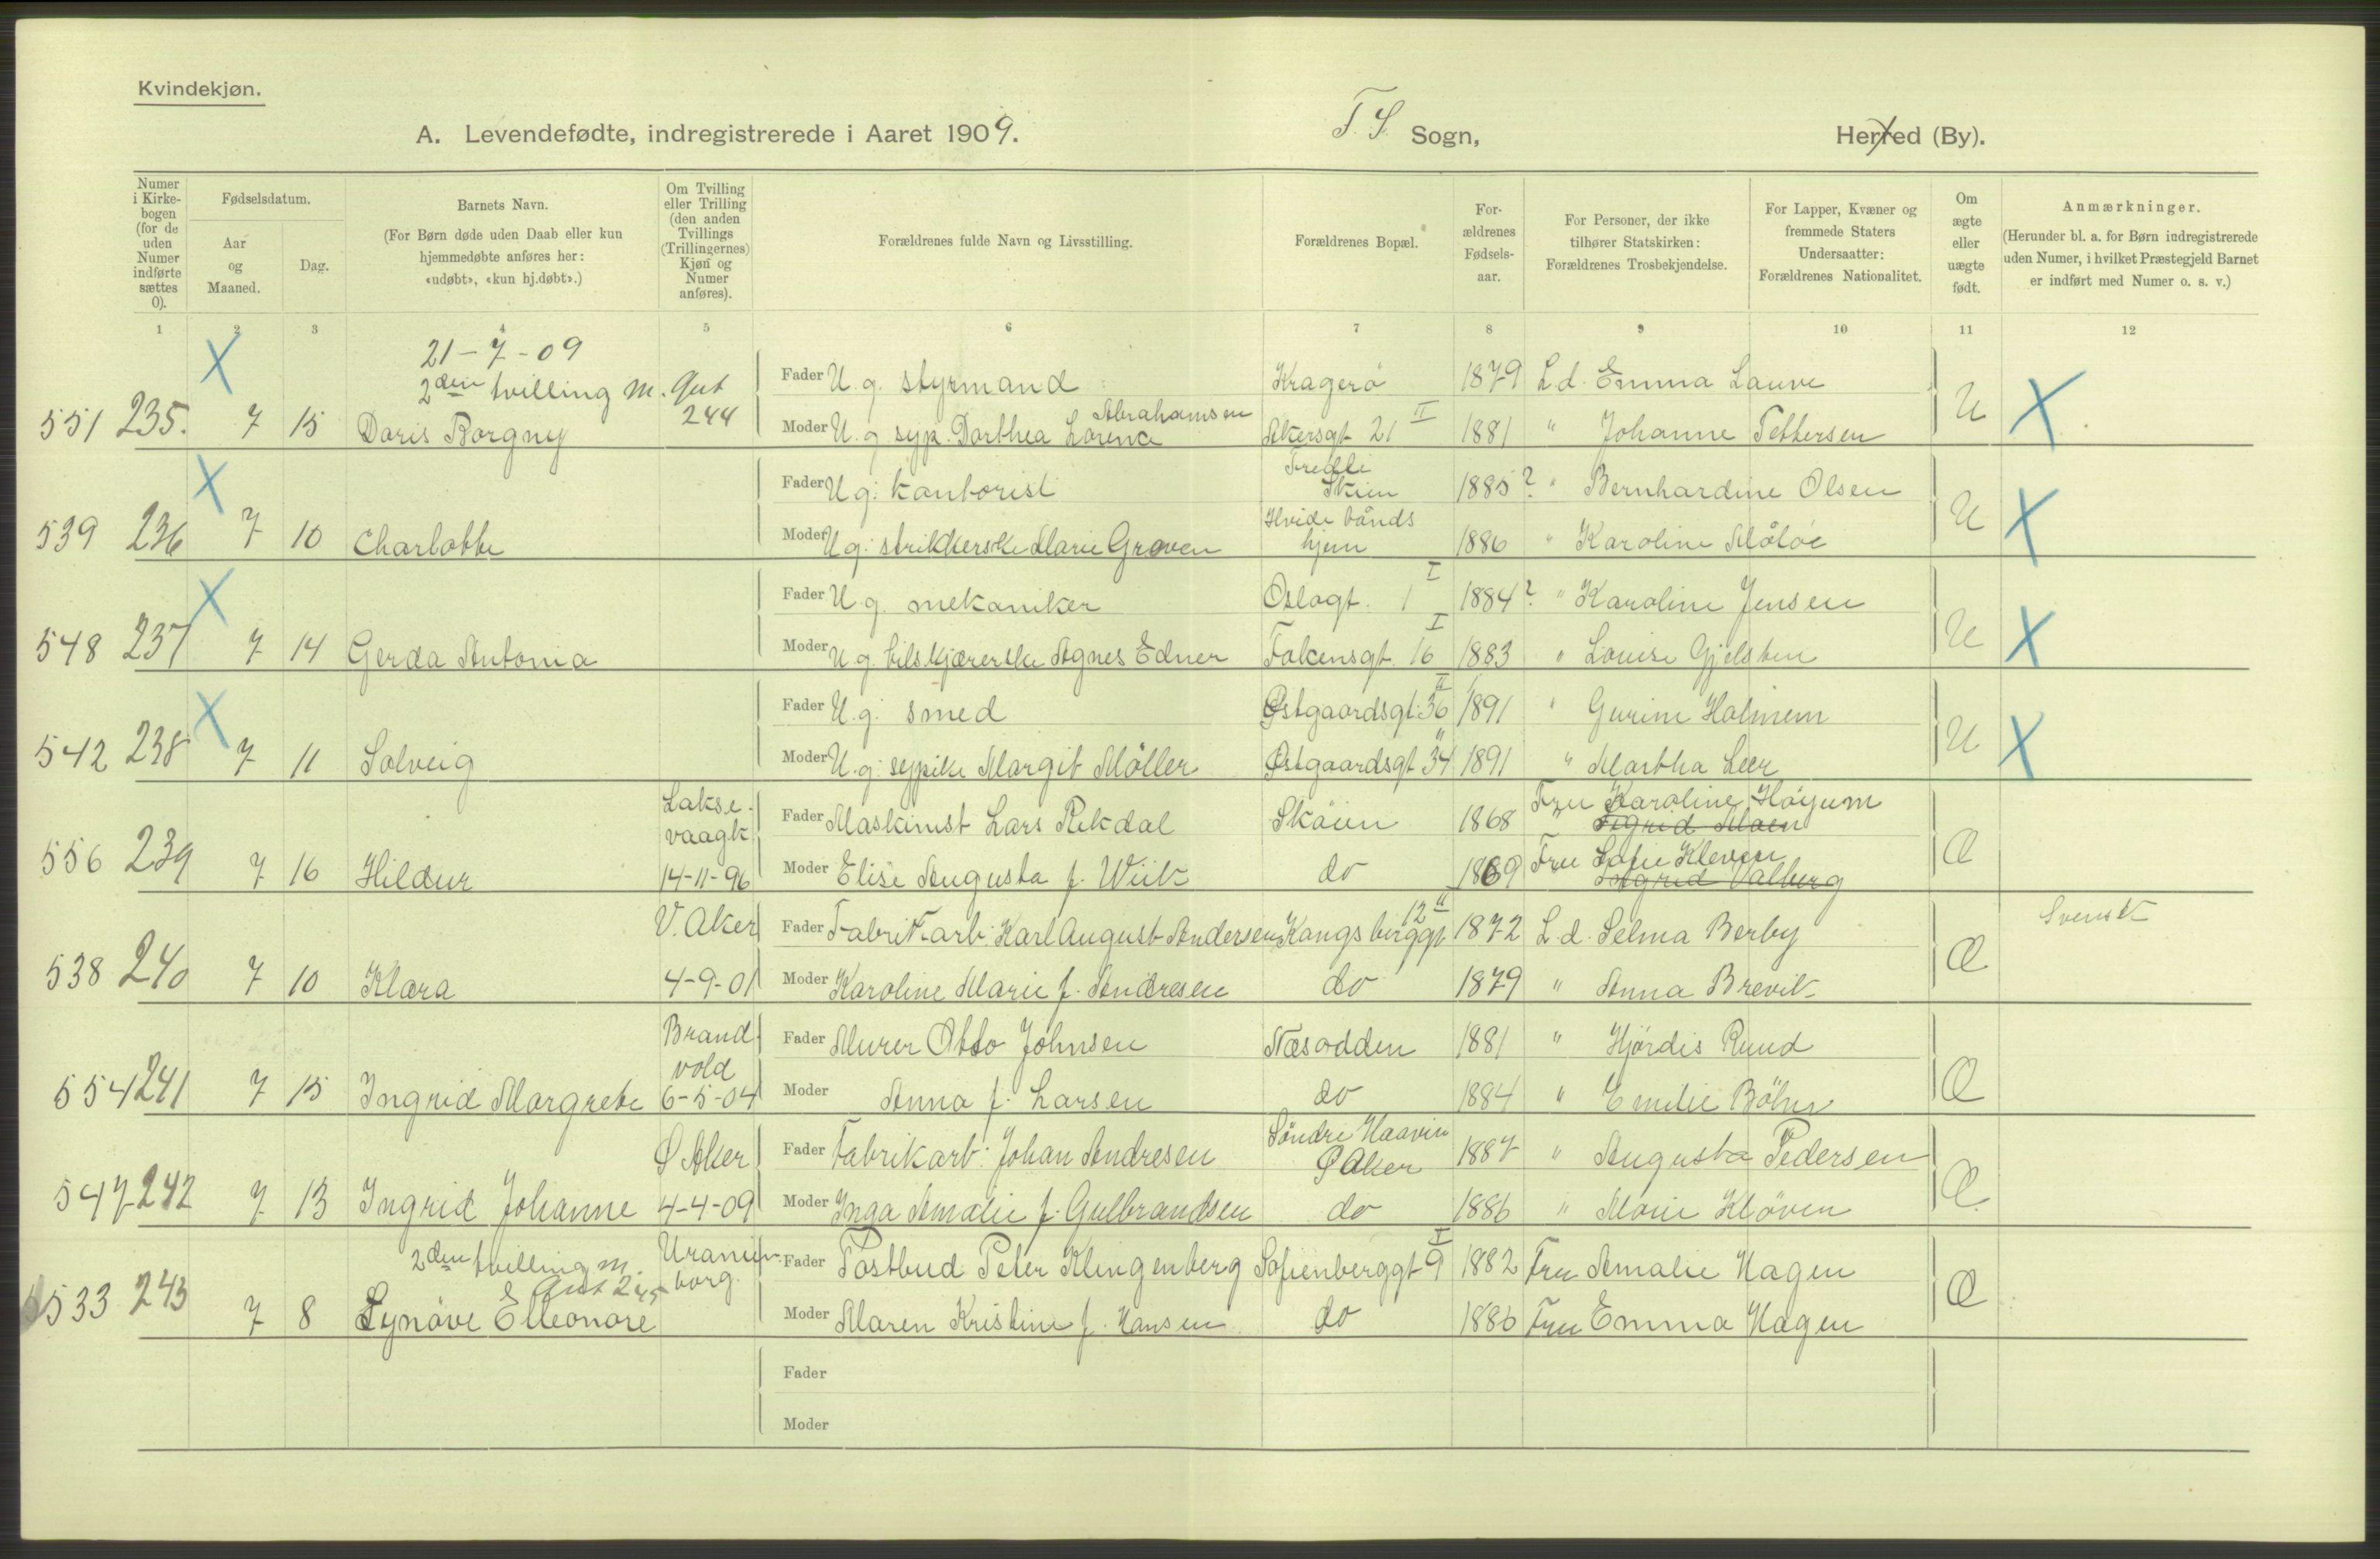 Kvindekjøn.
A. Levendefødte, indregistrerede i Aaret 1909.
F. S. Sogn,
Herred (By).
Numer i Kirkebogen (for de uden Numer indførte sættes 0).
Fødselsdatum.
Aar og Maaned.
Dag.
Barnets Navn.
(For Børn døde uden Daab eller kun hjemmedøbte anføres her: «udøbt», «kun hj.døbt».)
Om Tvilling eller Trilling (den anden Tvillings (Trillingernes) Kjøn og Numer anføres).
Forældrenes fulde Navn og Livsstilling.
Forældrenes Bopæl.
Forældrenes Fødselsaar.
For Personer, der ikke tilhører Statskirken: Forældrenes Trosbekjendelse.
For Lapper, Kvæner og fremmede Staters Undersaatter: Forældrenes Nationalitet.
Om ægte eller uægte født.
Anmærkninger.
(Herunder bl. a. for Børn indregistrerede uden Numer, i hvilket Præstegjeld Barnet er indført med Numer o. s. v.)
1 2 3 4 5 6 7 8 9 10 11 12
X 21-7-09
2den tvilling m. Gut 244
Fader U. g. styrmand Kragerø 1879 L.d. Emma Lauve
551 235. 7 15 Doris Borgny
Moder U. g. syp. Dorthea Lorence Abrahamsen Akersgt 21 II 1881 " Johanne Pettersen U X
X Fader U g. kontorist Skien 1885? " Bernhardine Olsen
539 236 7 10 Charlotte
Moder U g. strikkerske Marie Groven Hvide bånds hjem 1886 " Karoline U X
X Fader U. g. mekaniker Oslogt. 1 I 1884? " Karoline Jensen
548 237 7 14 Gerda Antonia
Moder U. g. tilskjærerske Agnes Edner Falcensgt. 16 I 1883 " Louise Gjelsten U X
X Fader U. g. smed Østgaardsgt. 36 II 1891 " Gurine Holmem
542 238 7 11 Solveig
Moder U. g. sypike Margit Møller Østgaardsgt 34 1891 " Martha Leer U X
Laksevaagk. 14-11-96
Fader Maskinist Lars Rekdal Skøien 1868 Fru Karoline Høyum
Sigrid Moen
556 239 7 16 Hildur
Moder Elise Augusta f. Wiik do 1869 Fru Sofie Kleven
Valberg
Æ
V. Aker 4-9-01
Fader Fabrikarb. Karl August Andersen Kongsberggt 12 II 1872 L.d. Selma Berby Svensk
538 240 7 10 Klara
Moder Karoline Marie f. Andresen do 1879 " Anna Brevik Æ
Brandvold 6-5-04
Fader Murer Otto Johnsen Næsodden 1881 " Hjørdis Ruud
554 241 7 15 Ingrid Margrete
Moder Anna f. Larsen do 1884 " Emilie Bøhn Æ
Ø Aker 4-4-09
Fader Fabrikarb. Johan Andresen Søndre Haavin Ø Aker 1887 " Augusta Pedersen
547 242 7 13 Ingrid Johanne
Moder Inga Amalie f. Gulbrandsen do 1886 " Marie Kløven Æ
2den tvilling m. Gut 245 Uranienborg.
Fader Postbud Peter Klingenberg Sofienberggt 9 I 1882 Fru Amalie Hagen
533 243 7 8 Synøve Elleonore
Moder Maren Kristine f. Hansen do 1886 Fru Emma Hagen Æ
Fader
Moder